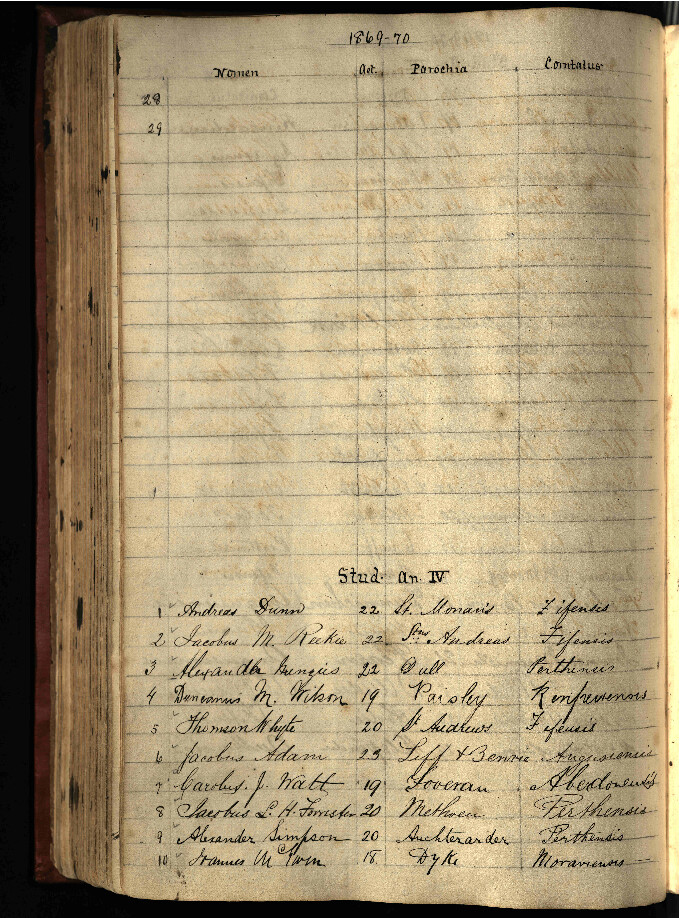 1869-70
Nomen Aet. Parochia Comitatus
28
29
Stud. An. IV
1 Andreas Dunn 22 St. Monan's Fifensis
2 Jacobus M. Reekie 22 Stus Andreas Fifensis
3 Alexander Menzies 22 Dull Perthensis
4 Duncanus M. Wilson 19 Paisley Renfrewensis
5 Thomson Whyte 20 St Andrews Fifensis
6 Jacobus Adam 23 Liff & Benvie Angusiensis
7 Carolus J. Watt 19 Foveran Aberdonensis
8 Jacobus L. H. Forrester 20 Methven Perthensis
9 Alexander Simpson 20 Auchterarder Perthensis
10 Joannes McEwen 18 Dyke Moraviensis